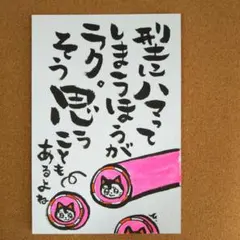 型にハマって
しまうほうが
ラク。
そう思う
ことも
あるよね